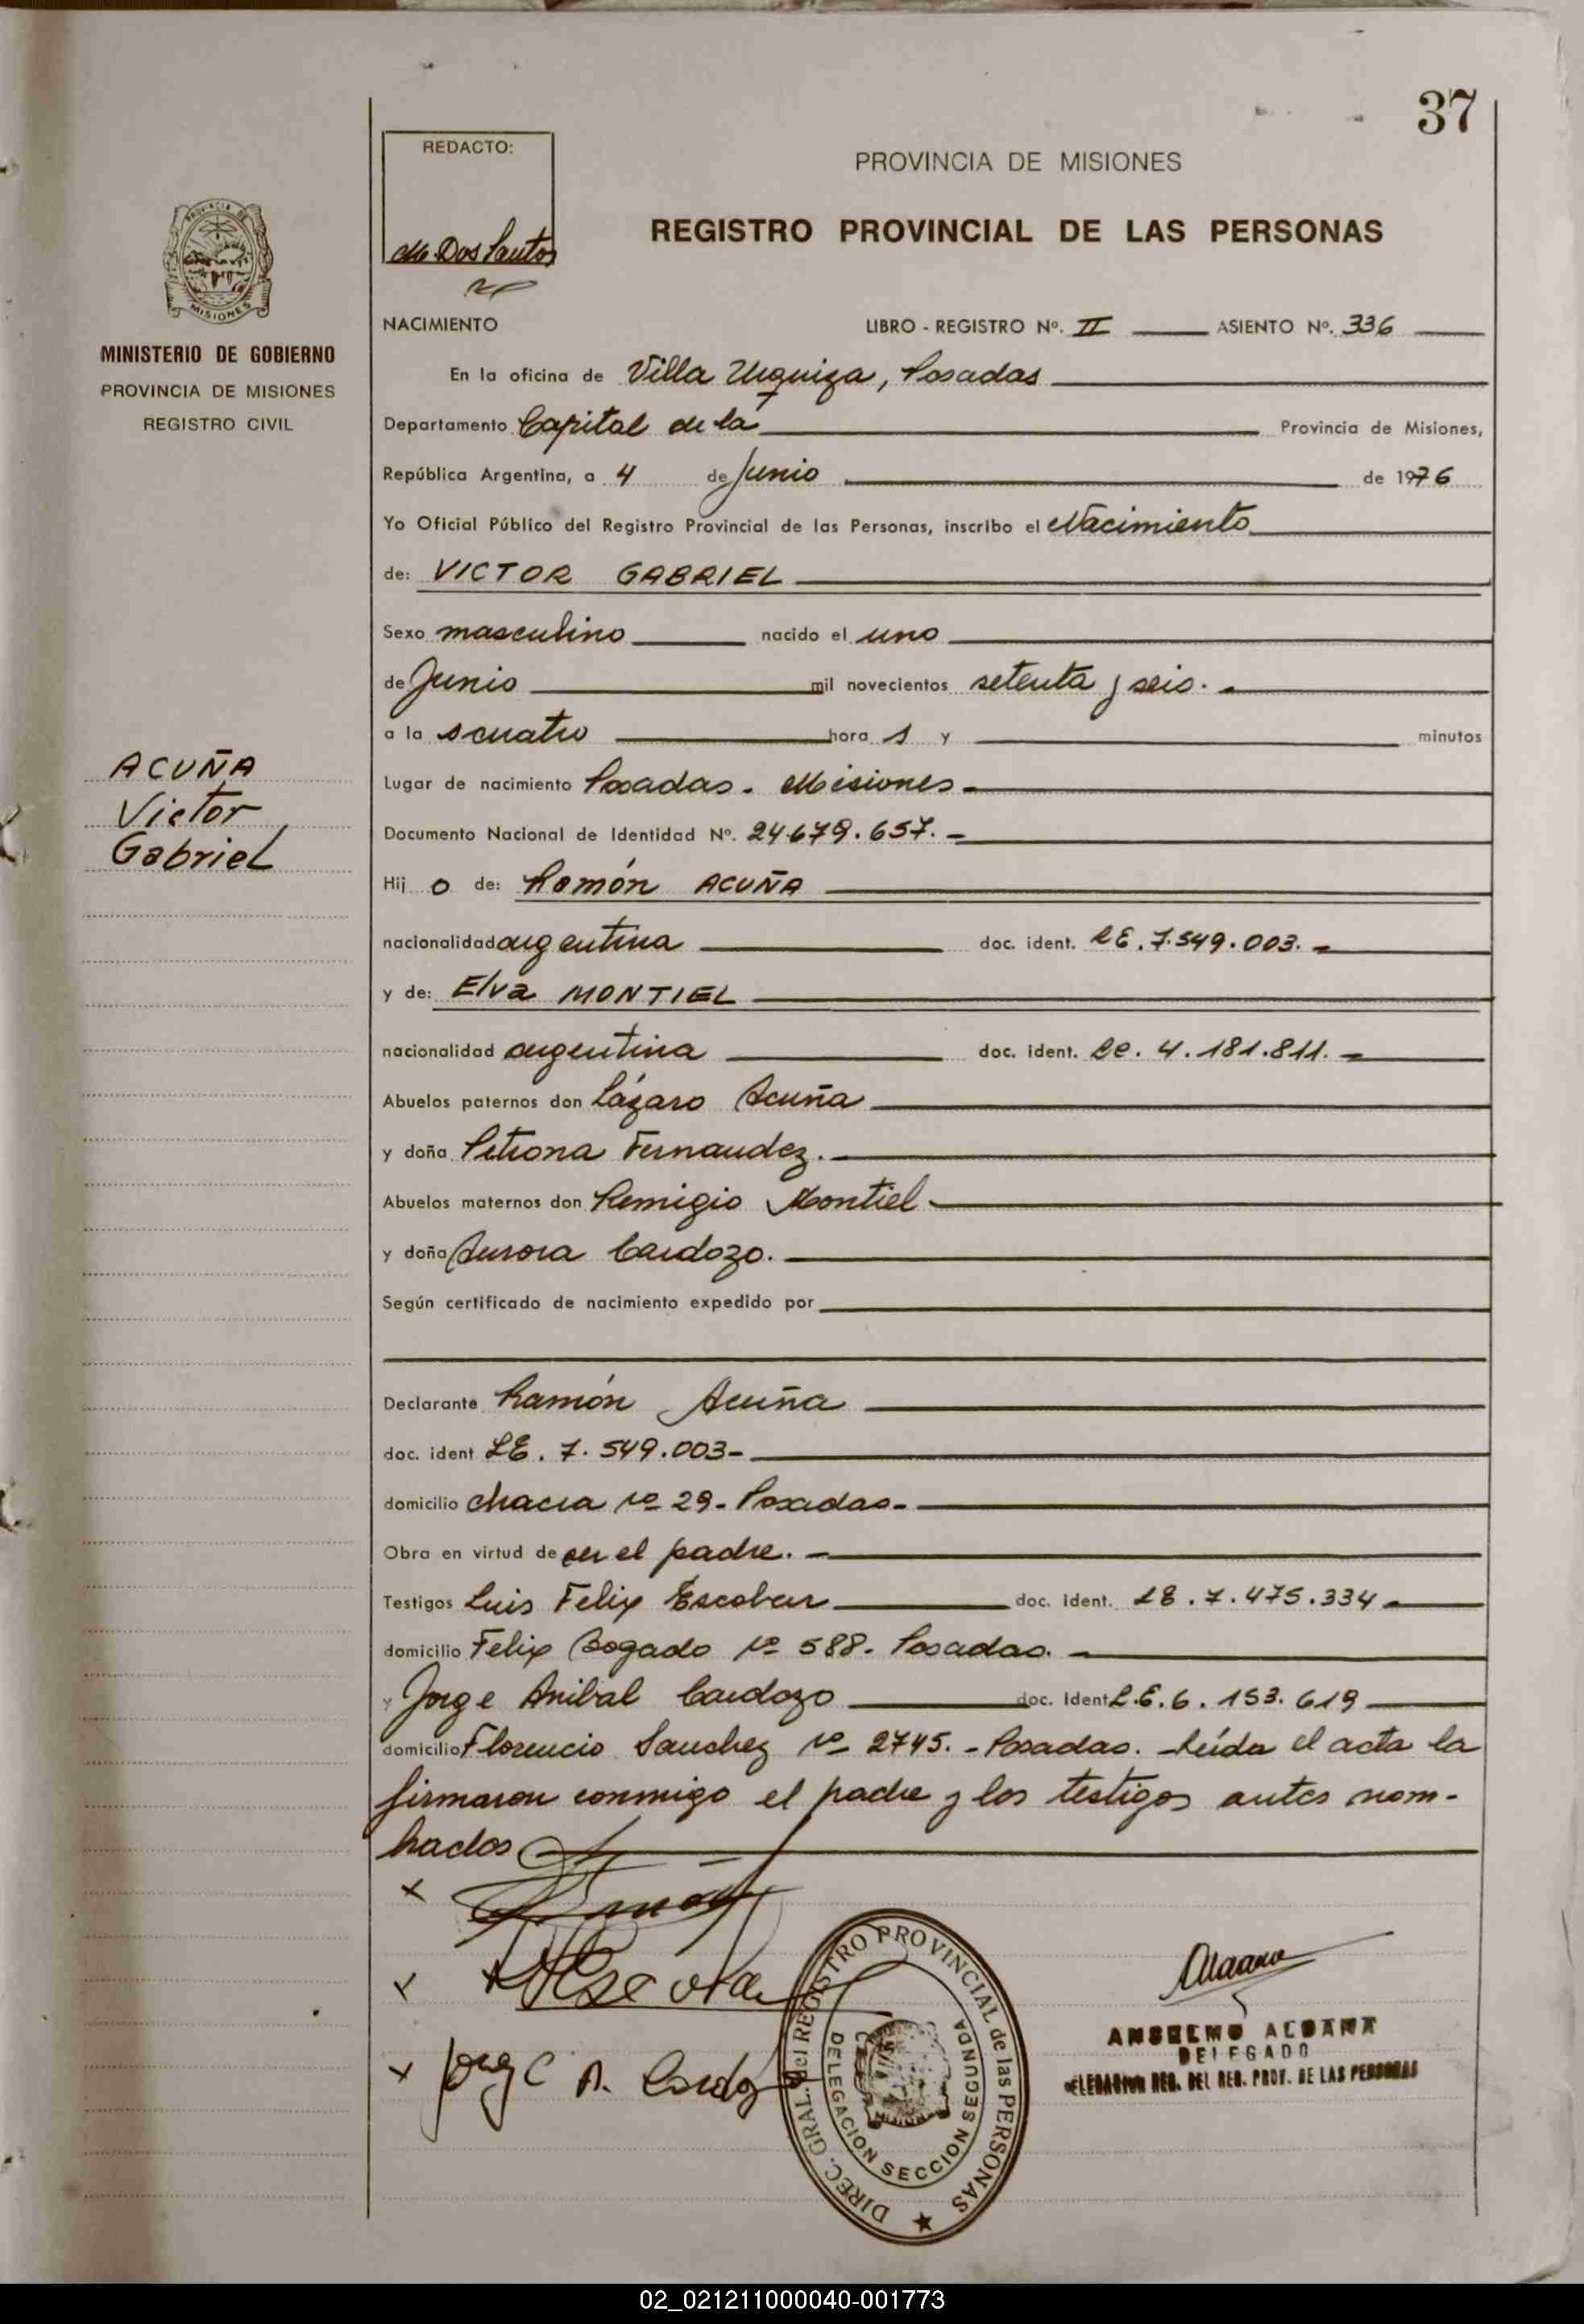 37
REDACTO:
M. Dos Santos
PROVINCIA DE MISIONES
REGISTRO PROVINCIAL DE LAS PERSONAS
PROVINCIA DE
MISIONES
MINISTERIO DE GOBIERNO
PROVINCIA DE MISIONES
REGISTRO CIVIL
ACUÑA
Victor
Gabriel
NACIMIENTO LIBRO - REGISTRO Nº. II ASIENTO Nº. 336
En la oficina de Villa Urquiza, Posadas
Departamento Capital de la Provincia de Misiones,
República Argentina, a 4 de Junio de 1976
Yo Oficial Público del Registro Provincial de las Personas, inscribo el Nacimiento
de: VICTOR GABRIEL
Sexo masculino nacido el uno
de Junio mil novecientos setenta y seis.
a la s cuatro hora s y minutos
Lugar de nacimiento Posadas. Misiones
Documento Nacional de Identidad Nº. 24.679.657.
Hij o de: Ramón ACUÑA
nacionalidad argentina doc. ident. LE. 7.549.003.
y de: Elva MONTIEL
nacionalidad argentina doc. ident. LC. 4.181.811.
Abuelos paternos don Lázaro Acuña
y doña Petrona Fernandez.
Abuelos maternos don Remigio Montiel
y doña Aurora Cardozo.
Según certificado de nacimiento expedido por
Declarante Ramón Acuña
doc. ident LE. 7.549.003-
domicilio chacra nº 29- Posadas-
Obra en virtud de ser el padre.
Testigos Luis Felix Escobar doc. ident. LE. 7.475.334
domicilio Felix Bogado nº 588. Posadas.
y Jorge Anibal Cardozo doc. ident L.E. 6.153.619
domicilio Florencio Sanchez nº 2745.- Posadas. Leída el acta la
firmaron conmigo el padre y los testigos antes nom-
brados
x
x
x Jorge A. Cardozo
DIREC. GRAL. del REGISTRO PROVINCIAL de las PERSONAS
DELEGACION SECCION SEGUNDA
ANSELMO ALDANA
DELEGADO
DELEGACION REG. DEL REG. PROV. DE LAS PERSONAS
02_021211000040-001773